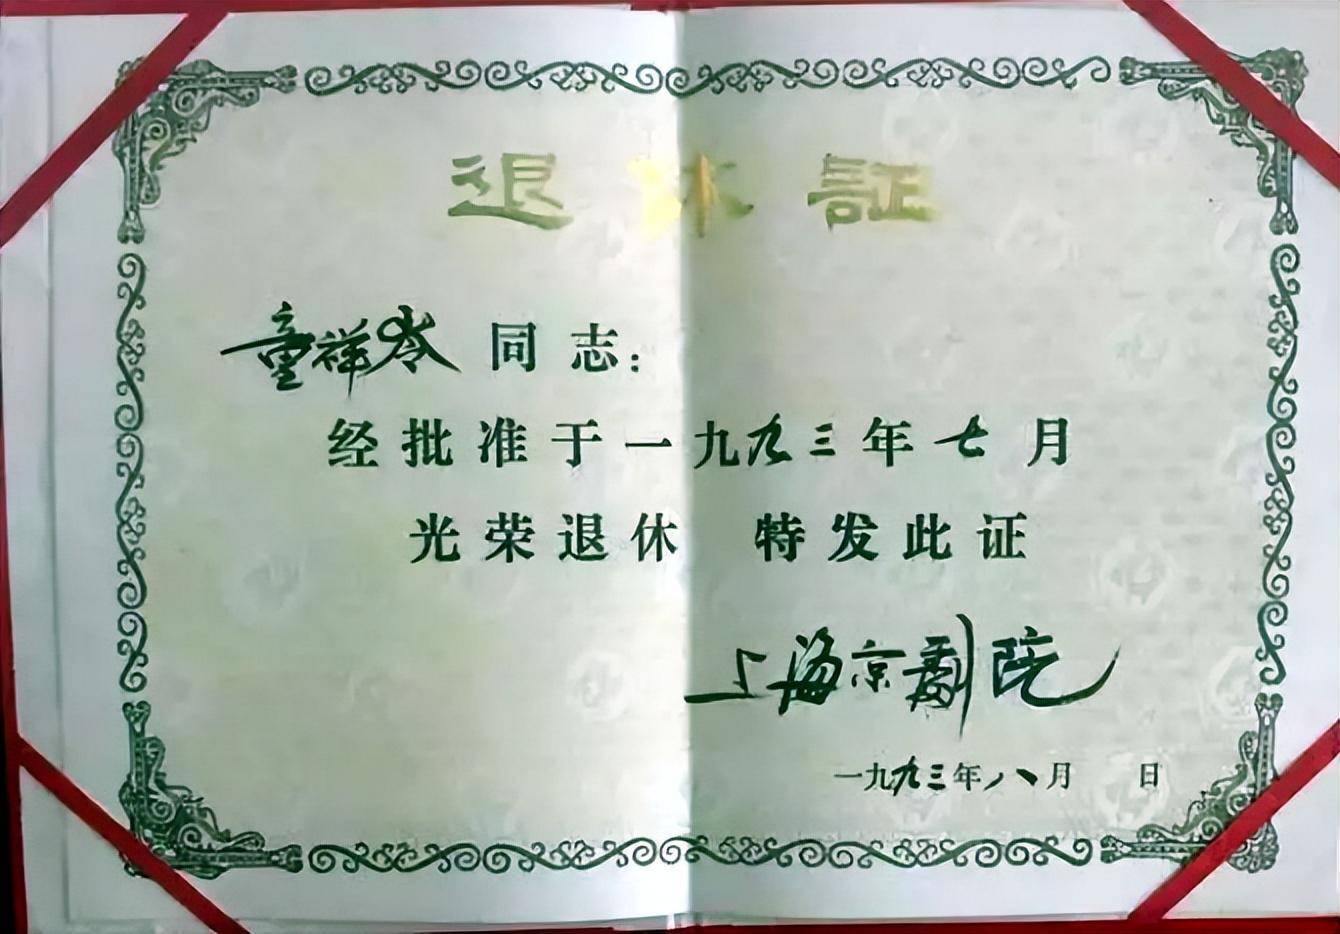 退休証
童祥苓 同志：
经批准于一九九三年七月
光荣退休 特发此证
上海京剧院
一九九三年八月 日